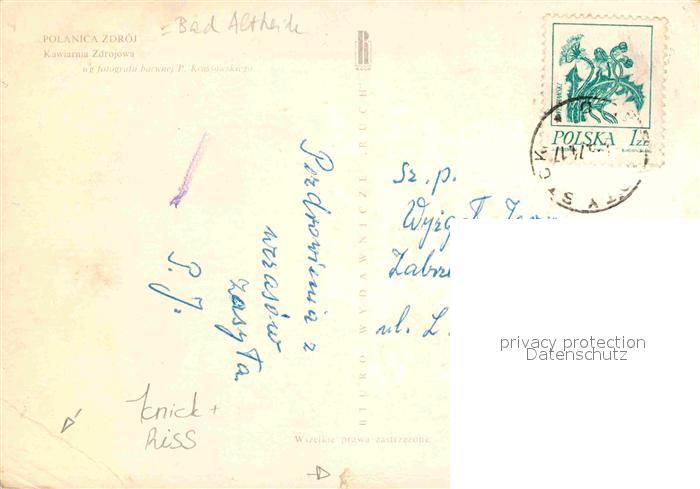 = Bad Altheide
POLANICA ZDRÓJ
Kawiarnia Zdrojowa
wg fotografii barwnej P. Krassowskiego
BIURO WYDAWNICZE RUCH
POLSKA 1zł
Pozdrowienia z
wczasów
zasyła.
P. J.
Sz. p.
Wyżg
Zabrz
ul. L.
privacy protection
Datenschutz
Knick +
Riss
Wszelkie prawa zastrzeżone